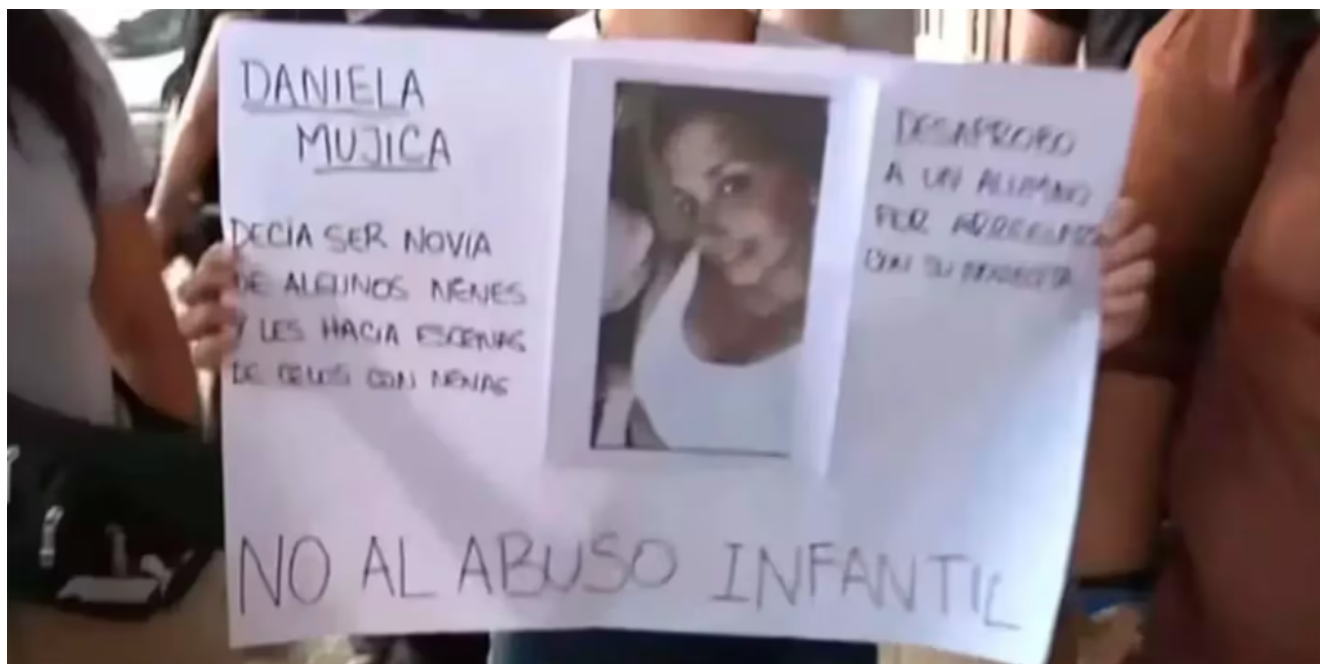 DANIELA
MUJICA
DECÍA SER NOVIA
DE ALGUNOS NENES
Y LES HACIA ESCENAS
DE CELOS CON NENAS
DESAPROBO
A UN ALUMNO
POR
CON SU
NO AL ABUSO INFANTIL